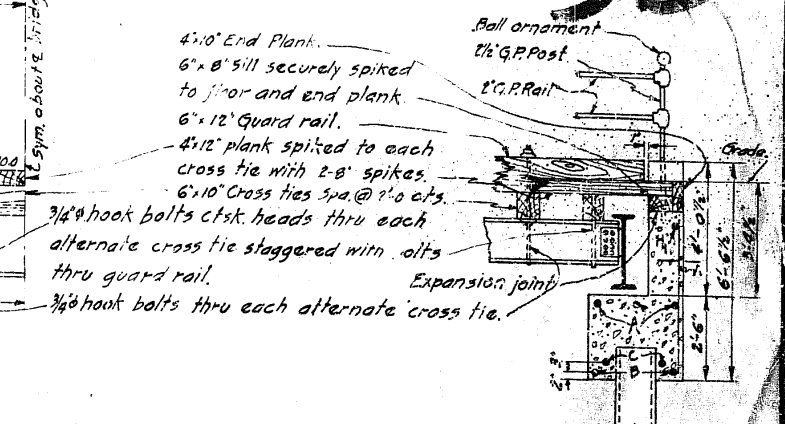 ℄ Sym. about ℄ bridge
4"x10" End Plank.
6"x 8" Sill securely spiked
to floor and end plank
6"x 12" Guard rail.
4"x12" plank spiked to each
cross tie with 2-8" spikes.
6"x10" Cross ties Spa. @ cts.
3/4"ϕ hook bolts ctsk. heads thru each
alternate cross tie staggered with olts
thru guard rail.
3/4"ϕ hook bolts thru each alternate cross tie.
Ball ornament
2½" G.P. Post
2" G.P. Rail
1"
Grade.
Expansion joint
4'-0½"
6'-6½"
3'-4½"
2'-6"
A
C
B
3"
2"